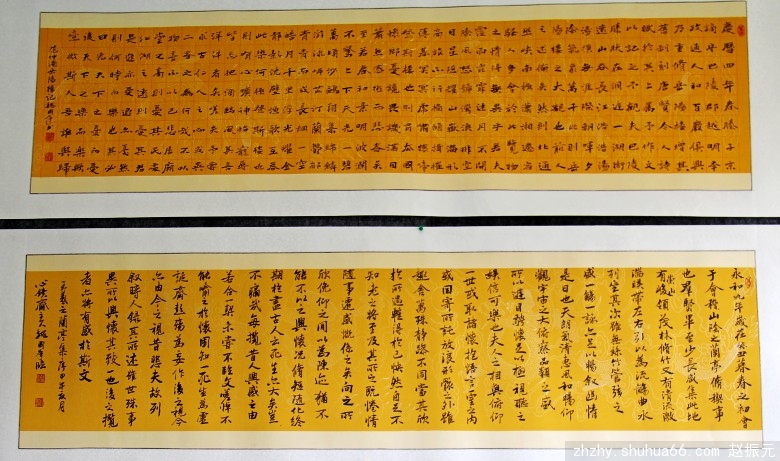 慶曆四年春滕子京
謫守巴陵郡越明年
政通人和百廢俱興
乃重修岳陽樓增其
舊制刻唐賢今人詩
賦於其上屬予作文
以記之予觀夫巴陵
勝狀在洞庭一湖銜
遠山吞長江浩浩湯
湯橫無際涯朝暉夕
陰氣象萬千此則岳
陽樓之大觀也前人
之述備矣然則北通
巫峽南極瀟湘遷客
騷人多會於此覽物
之情得無異乎若夫
霪雨霏霏連月不開
陰風怒號濁浪排空
日星隱耀山嶽潛形
商旅不行檣傾楫摧
薄暮冥冥虎嘯猿啼
登斯樓也則有去國
懷鄉憂讒畏譏滿目
蕭然感極而悲者矣
至若春和景明波瀾
不驚上下天光一碧
萬頃沙鷗翔集錦鱗
游泳岸芷汀蘭郁郁
青青而或長煙一空
皓月千里浮光耀金
靜影沉璧漁歌互答
此樂何極登斯樓也
則有心曠神怡寵辱
皆忘把酒臨風其喜
洋洋者矣嗟夫予嘗
求古仁人之心或異
二者之為何哉不以
物喜不以己悲居廟
堂之高則憂其民處
江湖之遠則憂其君
是進亦憂退亦憂然
則何時而樂耶其必
曰先天下之憂而憂
後天下之樂而樂歟
噫微斯人吾誰與歸
范仲淹岳陽樓記
永和九年歲在癸丑暮春之初會
于會稽山陰之蘭亭脩稧事
也羣賢畢至少長咸集此地
有崇山峻領茂林脩竹又有清流激
湍映帶左右引以為流觴曲水
列坐其次雖無絲竹管弦之
盛一觴一詠亦足以暢敘幽情
是日也天朗氣清惠風和暢仰
觀宇宙之大俯察品類之盛
所以遊目騁懷足以極視聽之
娛信可樂也夫人之相與俯仰
一世或取諸懷抱悟言一室之內
或因寄所託放浪形骸之外雖
趣舍萬殊靜躁不同當其欣
於所遇暫得於己快然自足不
知老之將至及其所之既惓情
隨事遷感慨係之矣向之所
欣俛仰之間以為陳迹猶不
能不以之興懷況脩短隨化終
期於盡古人云死生亦大矣豈
不痛哉每攬昔人興感之由
若合一契未嘗不臨文嗟悼不
能喻之於懷固知一死生為虛
誕齊彭殤為妄作後之視今
亦由今之視昔悲夫故列
敘時人錄其所述雖世殊事
異所以興懷其致一也後之攬
者亦將有感於斯文
王羲之蘭亭集序甲午五月
zhzhy.shuhua66.com 赵振元